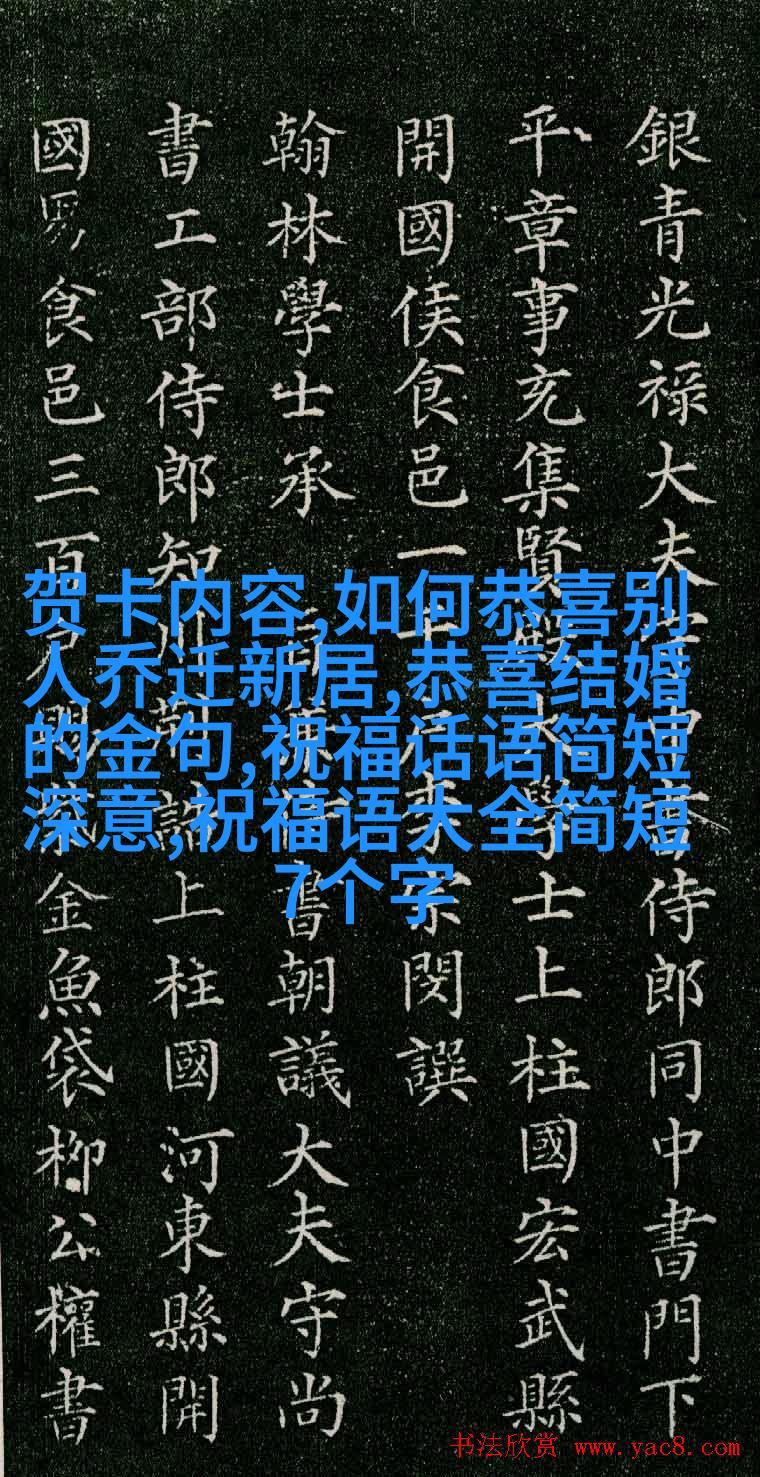 銀青光禄大夫守中書侍郎同中書門下
平章事充集賢殿大學士上柱國宏武縣
開國侯食邑一千戶李宗閔譔
翰林學士承旨兼侍書朝議大夫守尚
書工部侍郎知制誥上柱國河東縣開
國男食邑三百戶賜紫金魚袋柳公權書
贺卡内容,如何恭喜别
人乔迁新居,恭喜结婚
的金句,祝福话语简短
深意,祝福语大全简短
7个字
书法欣赏 www.yac8.com